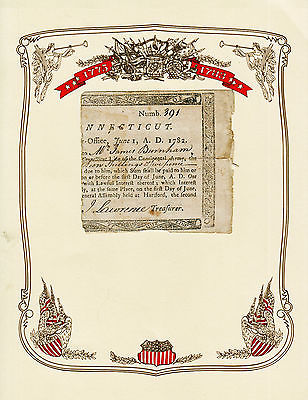 1775 1783
Numb. 391
NNECTICUT.
-Office, June 1, A. D. 1782.
Mr James Burnham,
Line of the Continental Army, the
Shillings & twopence
due to him, which Sum shall be paid to him or
on or before the first Day of June, A. D. One
with Lawful Interest thereon; which Interest
ly, at the same Place, on the first Day of June,
eneral Assembly held at Hartford, the second
J Lawrence Treasurer.